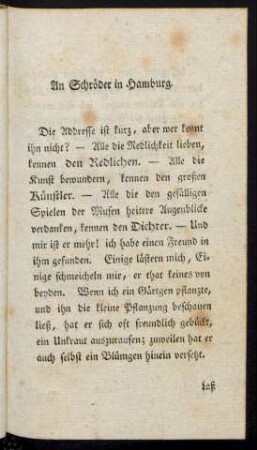 An Schröder in Hamburg.
Die Addresse ist kurz, aber wer kennt
ihn nicht? — Alle die Redlichkeit lieben,
kennen den Redlichen. — Alle die
Kunst bewundern, kennen den großen
Künstler. — Alle die den gefälligen
Spielen der Musen heitere Augenblicke
verdanken, kennen den Dichter. — Und
mir ist er mehr! ich habe einen Freund in
ihm gefunden. Einige lästern mich, Ei-
nige schmeicheln mir, er that keines von
beyden. Wenn ich ein Gärtgen pflanzte,
und ihn die kleine Pflanzung beschauen
ließ, hat er sich oft freundlich gebückt,
ein Unkraut auszuraufen; zuweilen hat er
auch selbst ein Blümgen hinein versetzt.
Laß